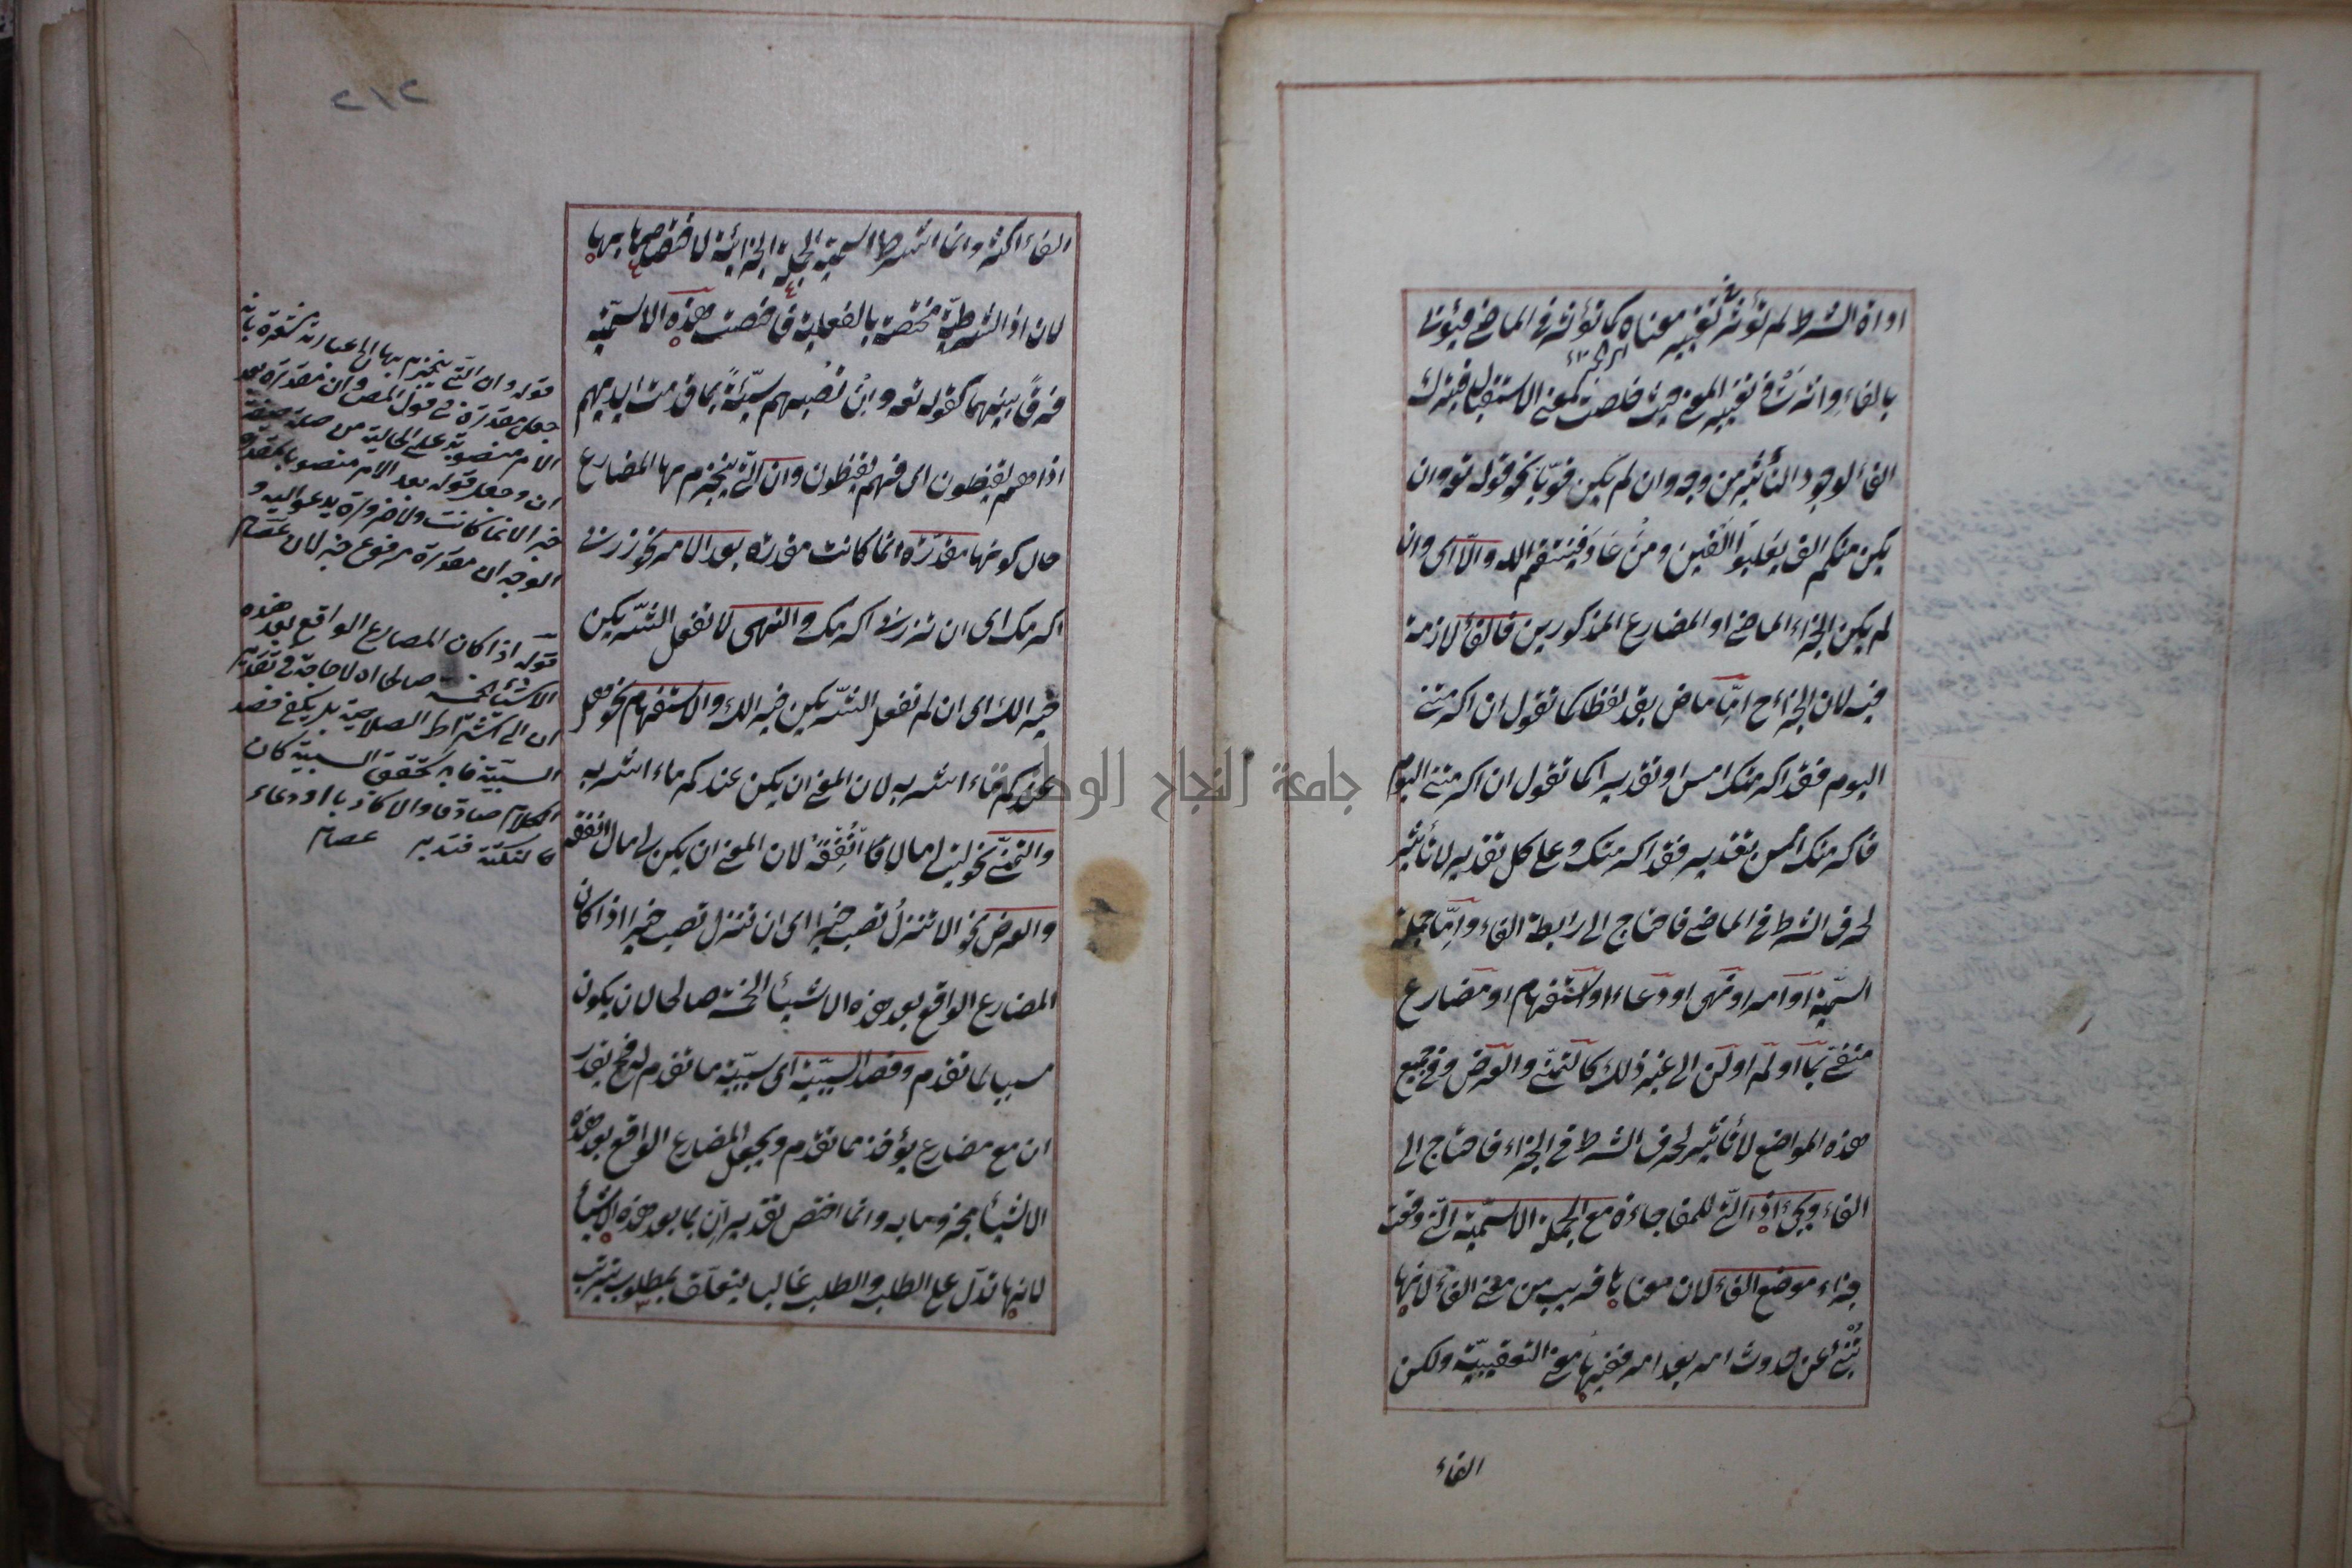 اداة الشرط لم تؤثر في تغيير معناه كما تؤثر في الماضي فيؤتى
بالفاء واثرت في تغيير المعنى حيث خلصت لمعنى الاستقبال فيترك
الفاء لوجود التأثير من وجه وان لم يكن قويا نحو قوله تع وان
يكن منكم الف يغلبوا الفين ومن عاد فينتقم الله والا اى وان
لم يكن الجزاء الماضي او المضارع المذكورين فالفاء لازمة
فيه لان الجزاء ح اما ماض بقد لفظا كما تقول ان اكرمتني
اليوم فقد اكرمتك امس او تقديرا كما تقول ان اكرمتني اليوم
فاكرمتك امس بتقدير فقد اكرمتك وعلى كل تقدير لا تأثير
لحرف الشرط في الماضي فاحتاج الى رابطة الفاء واما جملة
اسمية او امر او نهى او دعاء او استفهام او مضارع
منفي بما او لم او لن الى غير ذلك كالتمني والعرض وفي جميع
هذه المواضع لا تأثير لحرف الشرط في الجزاء فاحتاج الى
الفاء ويجئ اذا التي للمفاجاءة مع الجملة الاسمية التي وقعت
جزاء موضع الفاء لان معناها قريب من معنى الفاء لانها
تنبئ عن حدوث امر بعد امر ففيها معنى التعقيبية ولكن
الفاء
٢١٢
الفاء اكثر وانما اشترط اسمية الجملة الجزائية لاختصاصها بها
لان اذا الشرطية مختصة بالفعلية فاختصت هذه الاسمية
فرقا بينهما كقوله تع وان تصبهم سيئة بما قدمت ايديهم
اذا هم يقنطون اى فهم يقنطون وان التي ينجزم بها المضارع
حال كونها مقدرة انما كانت مقدرة بعد الامر نحو زرني
اكرمك اى ان تزرني اكرمك والنهى لا تفعل الشر يكن
خيرا لك اى ان لم تفعل الشر يكن خيرا لك والاستفهام نحو هل
عندكم ماء اشربه لان المعنى ان يكن عندكم ماء اشربه
والتمني نحو ليت لي مالا انفقه لان المعنى ان يكن لي مال انفقه
والعرض نحو الا تنزل تصب خيرا اى ان تنزل تصب خيرا اذا كان
المضارع الواقع بعد هذه الاشياء الخمسة صالحا لان يكون
مسببا لما تقدم وقصد السببية اى سببية ما تقدم له فح يقدر
ان مع مضارع يؤخذ مما تقدم ويجعل المضارع الواقع بعد هذه
الاشياء مجزوما به وانما اختص تقدير ان بما بعد هذه الاشياء
لانها تدل على الطلب والطلب غالبا يتعلق بمطلوب يترتب
قوله وان التي ينجزم بها الى عبارته مشعرة بانه
جعل مقدرة في قول المص وان مقدرة بعد
الامر منصوبة على الحالية من
ان وجعل قوله بعد الامر منصوبا بمقدرة
خبر الانما كانت ولا ضرورة يدعو اليه و
الوجه ان مقدرة مرفوع خبر لان عصام
قوله اذا كان المضارع الواقع بعد هذه
الاشياء الخمسة صالحا اه لا حاجة في تقدير
ان الى اشتراط الصلاحية بل يكفي قصد
السببية فان تحقق السببية كان
الكلام صادقا والا كاذبا او دعاء
لنكتة فتدبر عصام
جامعة النجاح الوطنية